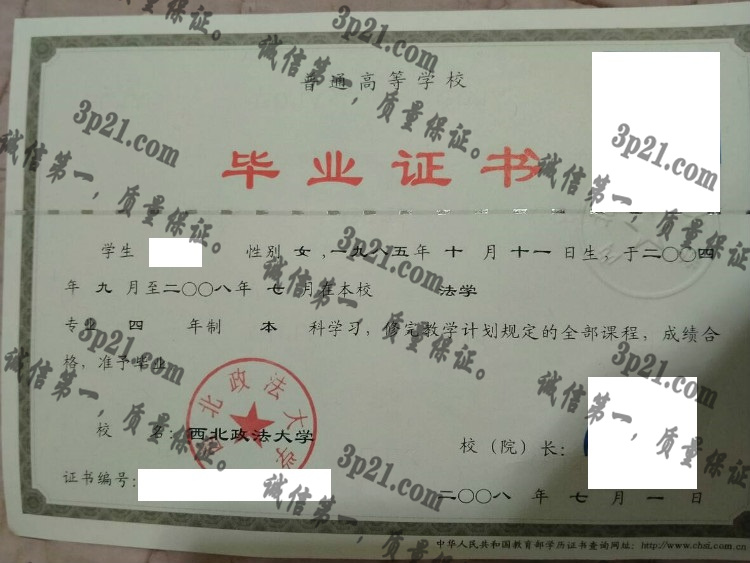 普通高等学校
毕业证书
学生 性别 女，一九八五年 十 月 十一 日生，于二〇〇四
年 九 月至二〇〇八年 七 月在本校 法学
专业 四 年制 本 科学习，修完教学计划规定的全部课程，成绩合
格，准予毕业
校 名：西北政法大学
校（院）长：
证书编号：
二〇〇八 年 七 月 一 日
中华人民共和国教育部学历证书查询网址：http://www.chsi.com.cn
北政法大学
3p21.com
诚信第一，质量保证。
3p21.com
诚信第一，质量保证。
3p21.com
诚信第一，质量保证。
3p21.com
诚信第一，质量保证。
3p21.com
诚信第一，质量保证。
3p21.com
诚信第一，质量保证。
3p21.com
诚信第一，质量保证。
3p21.com
诚信第一，质量保证。